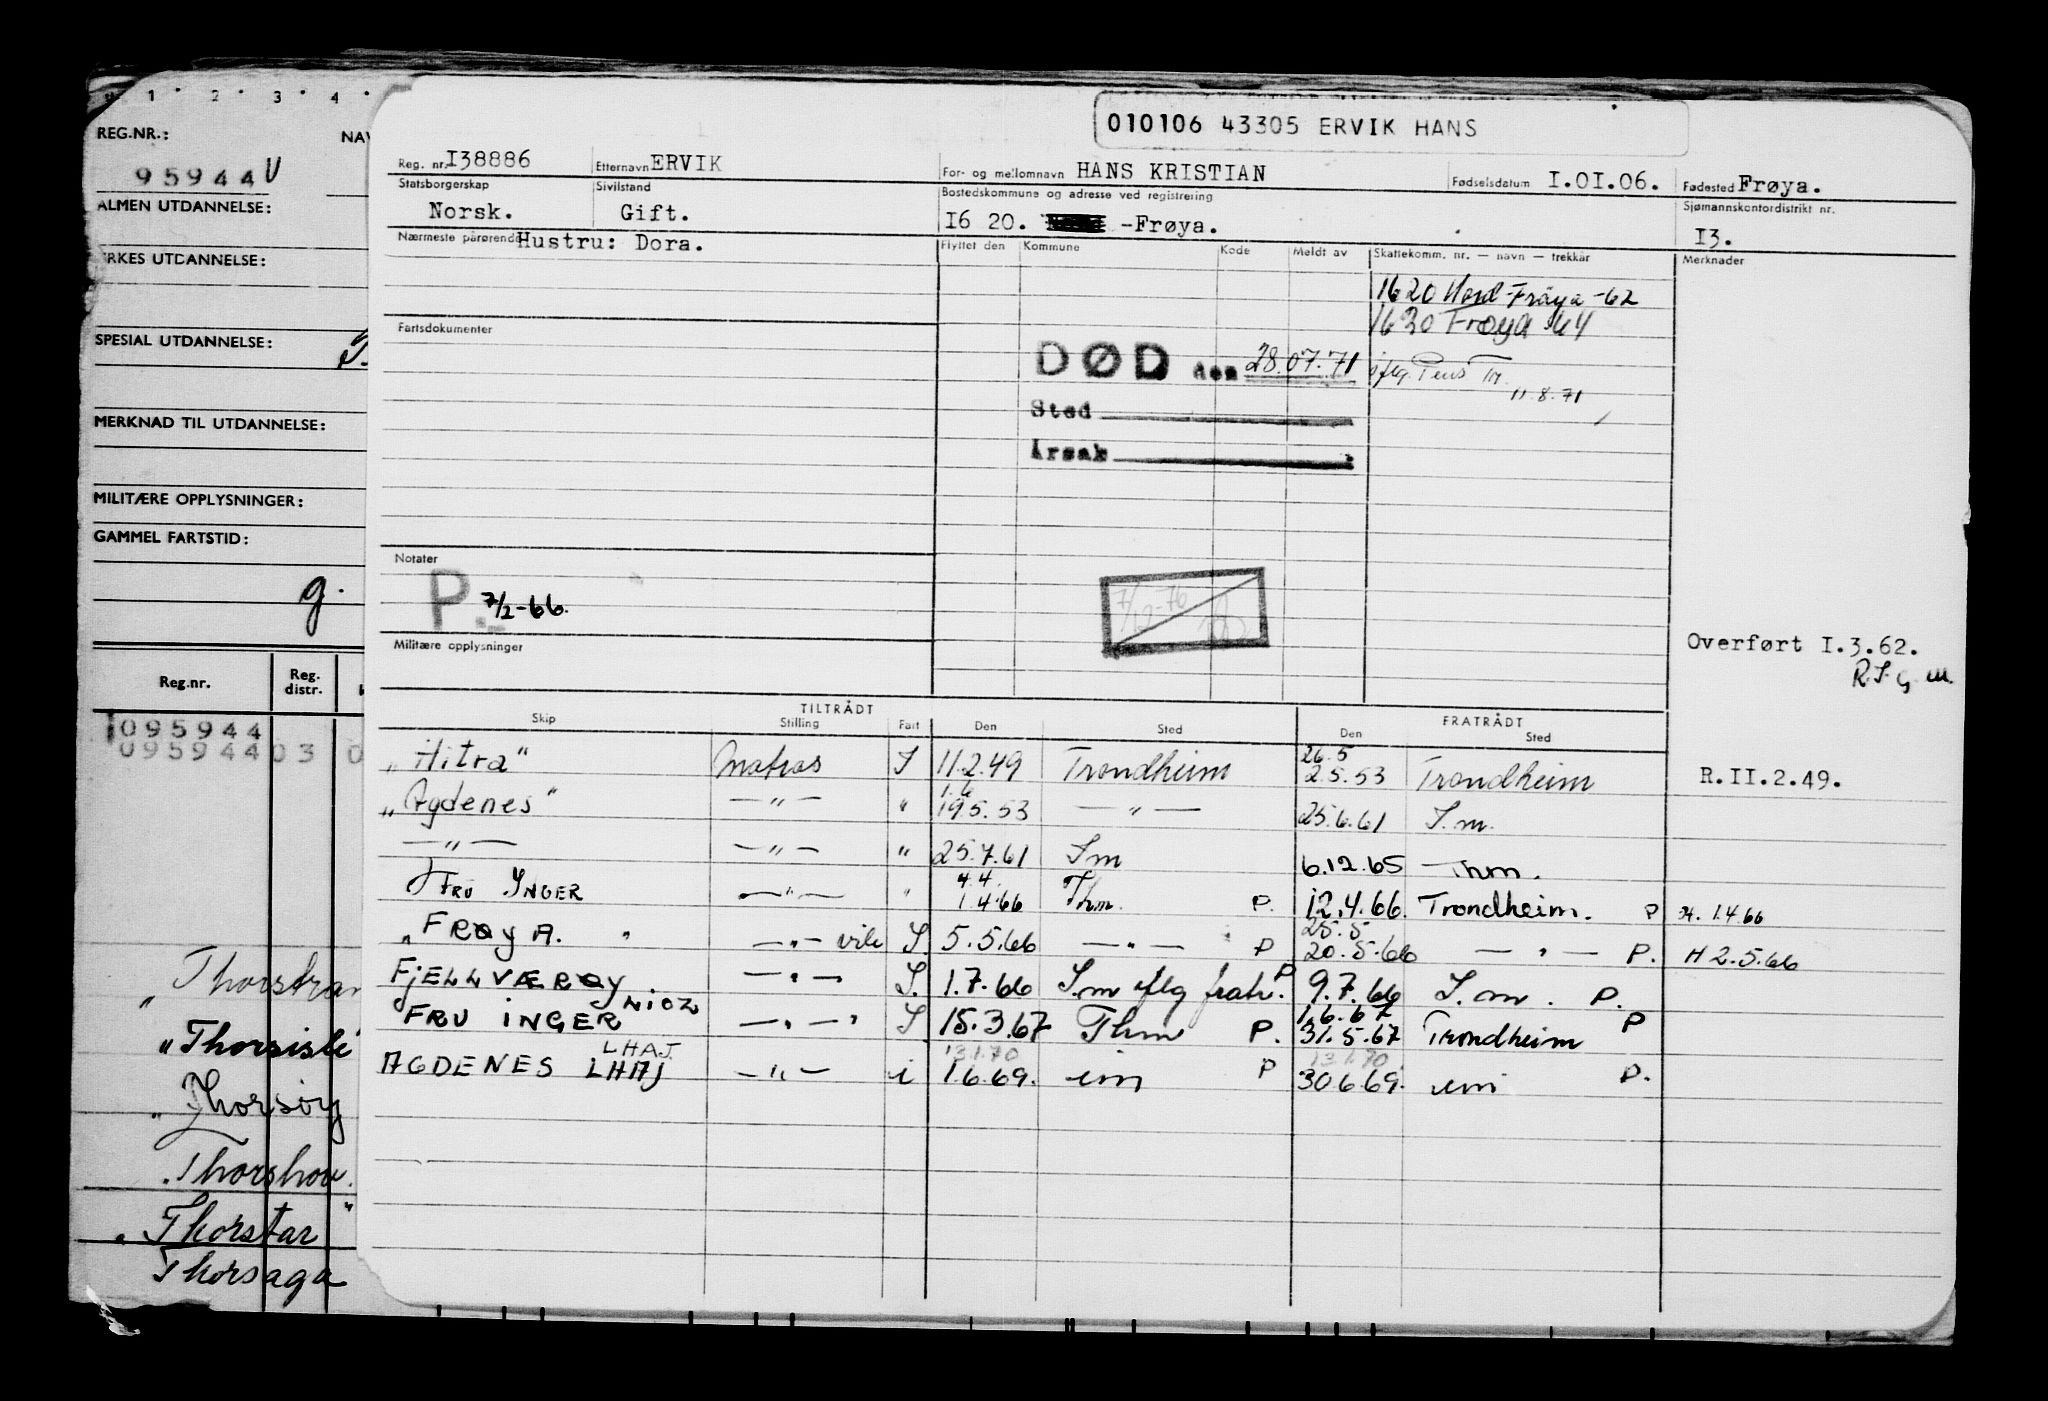 1 · 2 · 3 · 4 ·
REG.NR.:
95944 V
ALMEN UTDANNELSE:
SPESIAL UTDANNELSE:
MERKNAD TIL UTDANNELSE:
MILITÆRE OPPLYSNINGER:
GAMMEL FARTSTID:
g.
Reg.nr. Reg. distr.
095944
09594403 0
"Thorsøy
"Thorshov.
"Thorstar"
Thorsaga
010106 43305 ERVIK HANS
Reg. nr. I38886 Etternavn ERVIK For- og mellomnavn HANS KRISTIAN Fødselsdatum I.OI.06. Fødested Frøya.
Statsborgerskap Sivilstand Bostedskommune og adresse ved registrering Sjømannskontordistrikt nr.
Norsk. Gift. I6 20. -Frøya. I3.
Nærmeste pårørende Hustru: Dora. Flyttet den Kommune Kode Meldt av Skattekomm. nr. — navn — trekkår Merknader
1620 Nord-Frøya -62
1620 Frøya 64
Fartsdokumenter
DØD den 28.07.71
iflg. Pens Tr.
11.8.71
Sted
Årsak
Notater
P. 7/2-66.
7/12-76
Militære opplysninger
Overført I.3.62.
TILTRÅDT FRATRÅDT
Skip Stilling Fart Den Sted Den Sted
26.5
"Hitra" Matros S 11.2.49 Trondheim 2.5.53 Trondheim R.II.2.49.
1.6
"Agdenes" — " — " 19.5.53 — " — 25.6.61 S.m.
— " — — " — " 25.7.61 Sm 6.12.65 Thm.
4.4.
FRU INGER — " — " 1.4.66 Thm. P. 12.4.66. Trondheim. P H. 1.4.66
25.5
"FRØYA. " — " — S. 5.5.66 — " — P 20.5.66 — " — P. H 2.5.66
FJELLVÆRØY — " — S. 1.7.66 S.m iflg fratr. P 9.7.66 S.m. P.
1.6.67
FRU INGER LIOZ — " — " S 15.3.67 Thm P. 31.5.67 Trondheim P
LHAJ 13.1.70 13.1.70
AGDENES LHAJ — " — i 1.6.69. im P 30.6.69. um P.